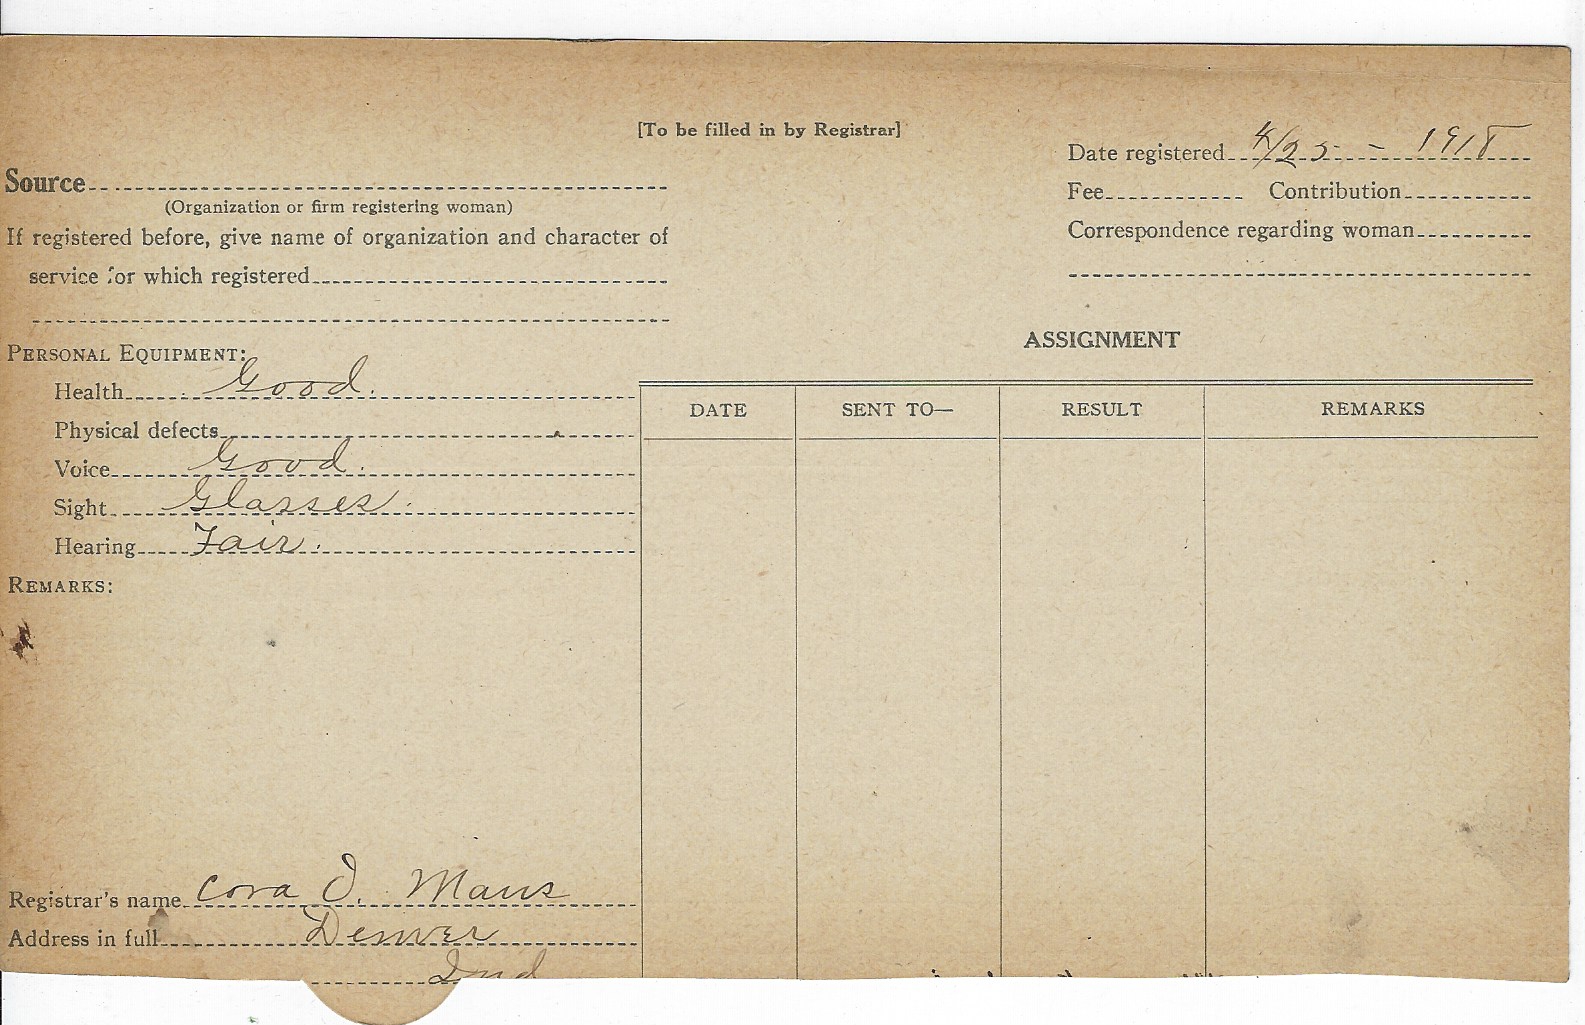 [To be filled in by Registrar]
Date registered 4/25 - 1918
Source
(Organization or firm registering woman)
Fee Contribution
If registered before, give name of organization and character of
Correspondence regarding woman
service for which registered
PERSONAL EQUIPMENT:
ASSIGNMENT
Health Good.
DATE SENT TO— RESULT REMARKS
Physical defects
Voice Good.
Sight Glasses.
Hearing Fair.
REMARKS:
Registrar's name Cora Maus
Address in full Denver
Ind